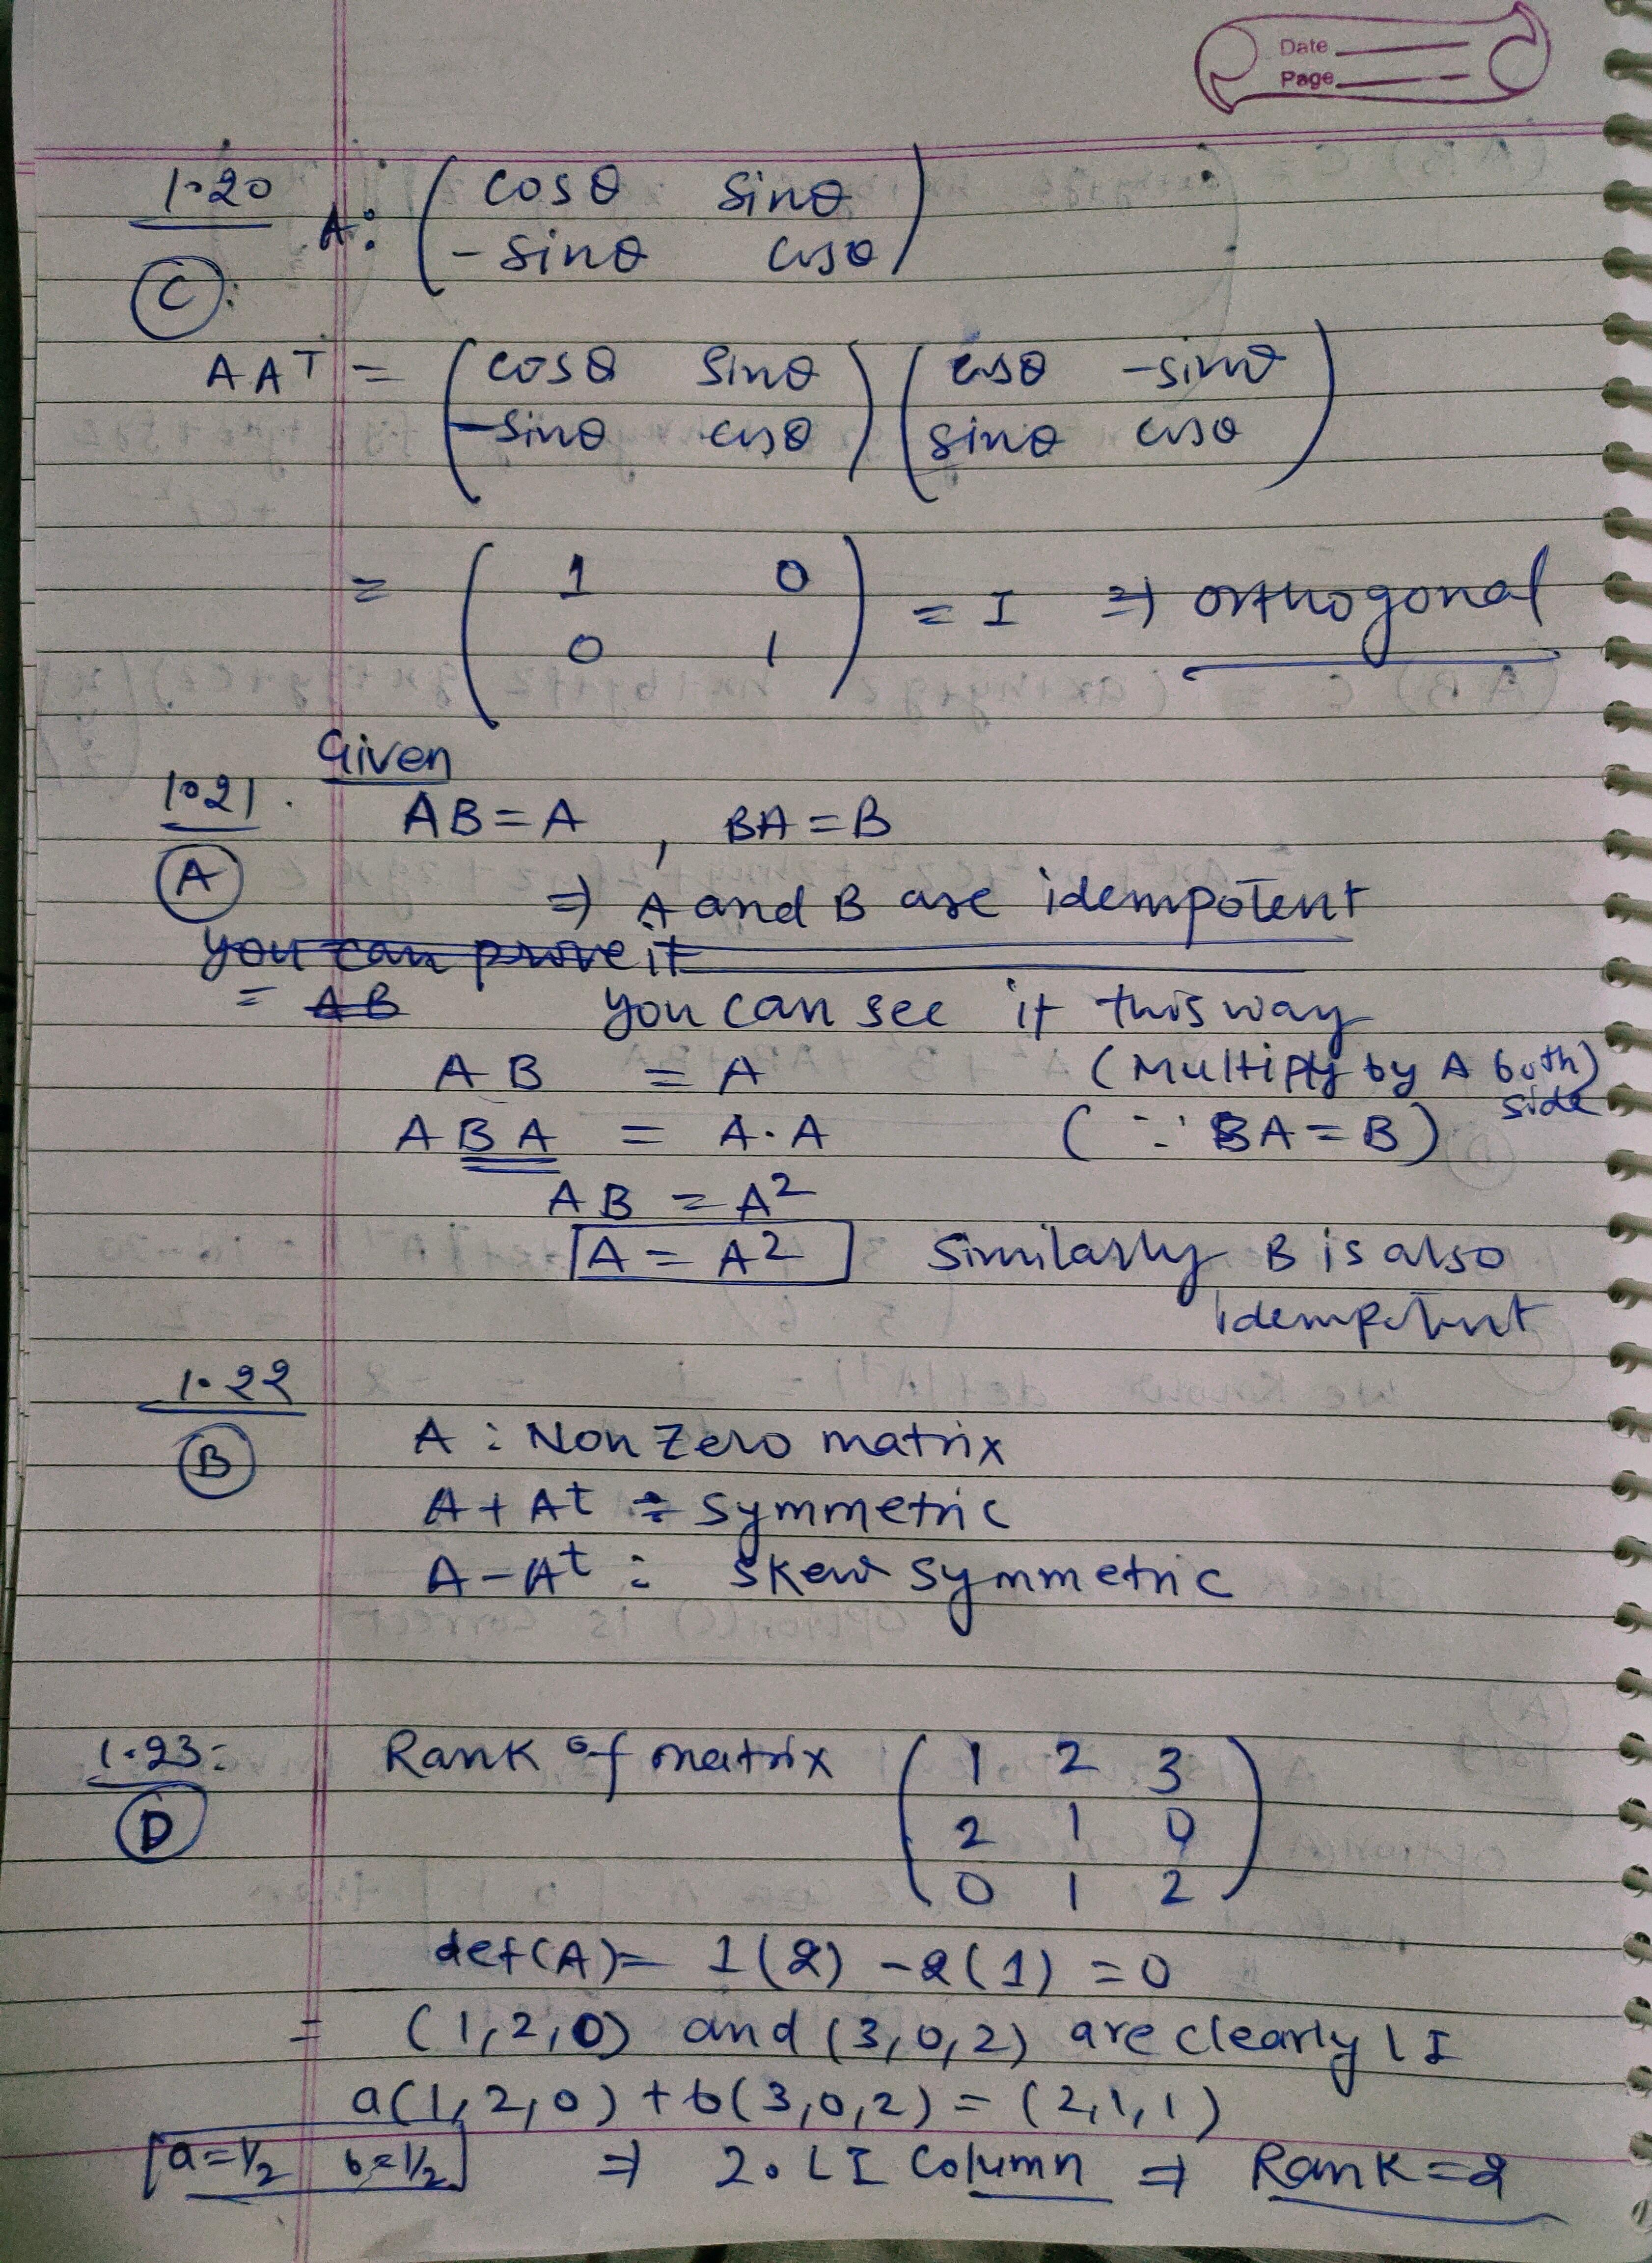 Date
Page
1.20 A: ( cosθ sinθ
-sinθ cosθ )
(C):
AA^T = ( cosθ sinθ ) ( cosθ -sinθ )
-sinθ cosθ sinθ cosθ
= ( 1 0 ) = I ⇒ orthogonal
0 1
Given
1.21. AB = A , BA = B
(A) ⇒ A and B are idempotent
you can prove it
= AB you can see it this way
AB = A (Multiply by A both side)
ABA = A·A (∵ BA = B)
AB = A²
A = A² Similarly B is also
idempotent
1.22
(B) A : Non Zero matrix
A + A^t : Symmetric
A - A^t : Skew Symmetric
1.23: Rank of matrix ( 1 2 3
(D) 2 1 0
0 1 2 )
det(A) = 1(2) - 2(1) = 0
= (1,2,0) and (3,0,2) are clearly LI
a(1,2,0) + b(3,0,2) = (2,1,1)
[a=1/2 b=1/2] ⇒ 2. LI Column ⇒ Rank = 2